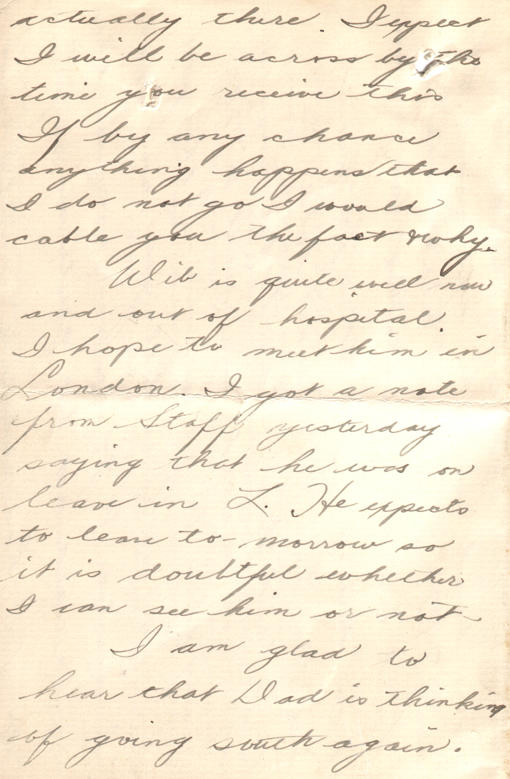 actually there. I expect
I will be across by the
time you receive this
If by any chance
anything happens that
I do not go I would
cable you the fact & why.
Wib is quite well now
and out of hospital.
I hope to meet him in
London. I got a note
from Staff yesterday
saying that he was on
leave in L. He expects
to leave to-morrow so
it is doubtful whether
I can see him or not.
I am glad to
hear that Dad is thinking
of going south again.